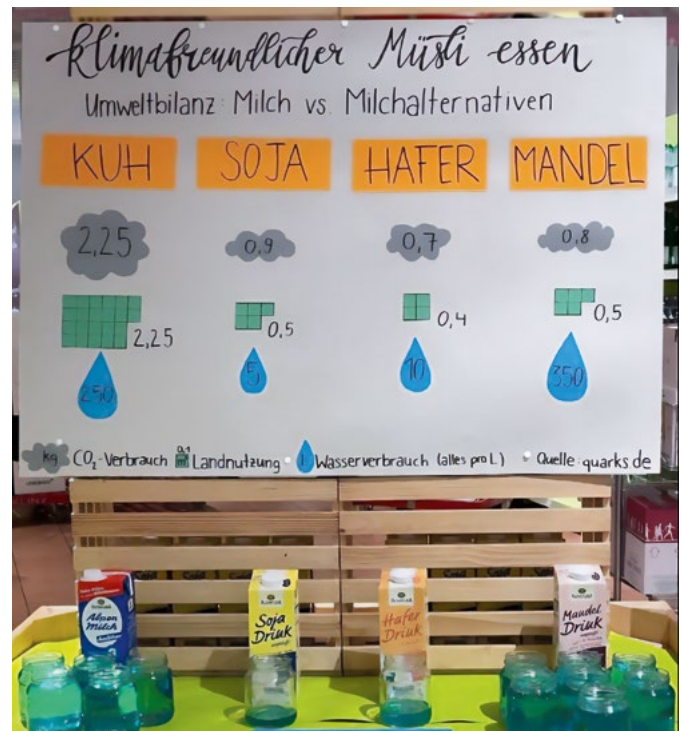 klimafreundlicher Müsli essen
Umweltbilanz: Milch vs. Milchalternativen
KUH SOJA HAFER MANDEL
2,25 0,9 0,7 0,8
2,25 0,5 0,4 0,5
250 5 10 350
kg CO₂-Verbrauch 0,1 Landnutzung l Wasserverbrauch (alles pro L) Quelle: quarks.de
Alpen Milch
Soja Drink
Hafer Drink
Mandel Drink